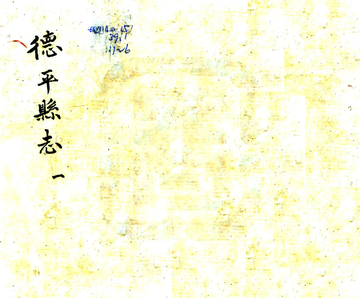 德平縣志
一